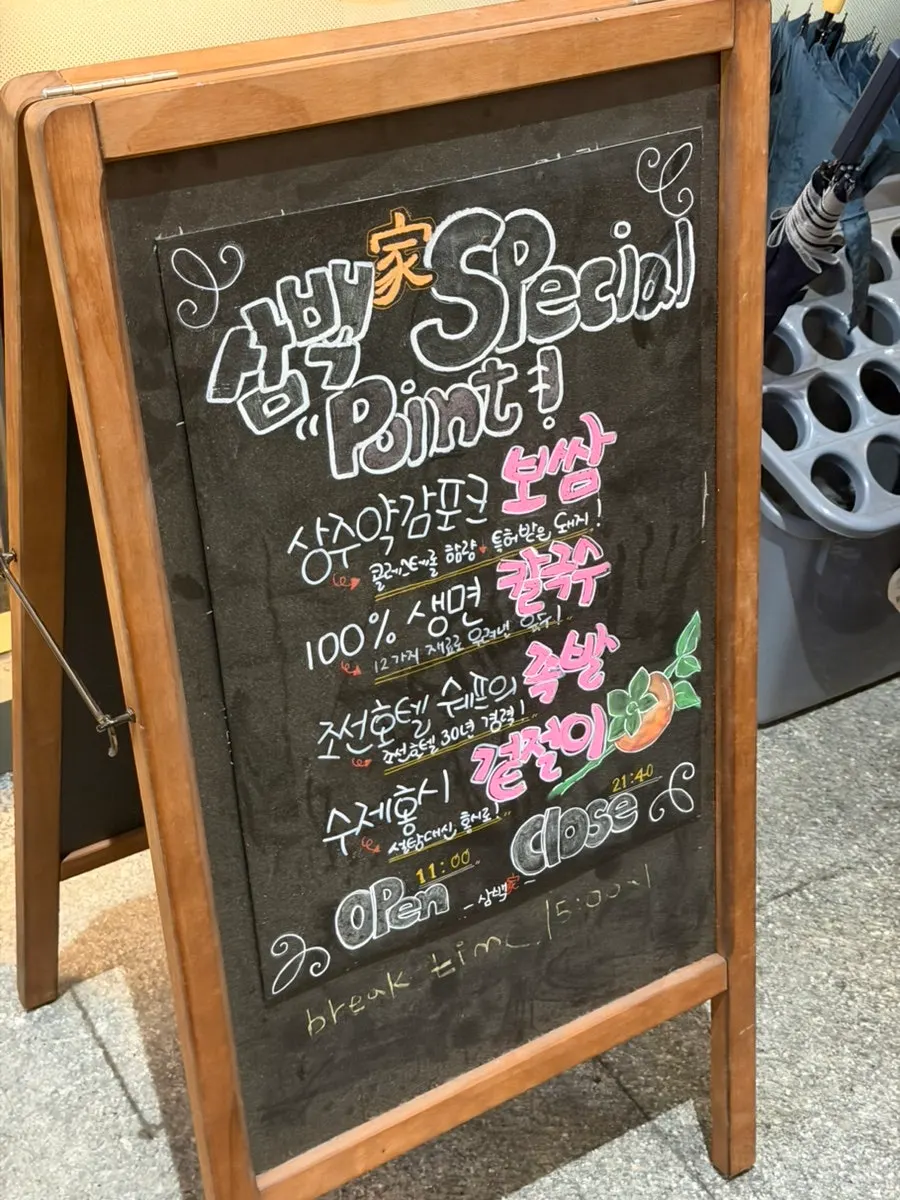 삼백家 Special
"Point!
상주약감포크 보쌈
콜레스테롤 함량↓ 특허받은 돼지!
100% 생면 칼국수
12가지 재료로 우려낸 육수!
조선호텔 쉐프의 족발
조선호텔 30년 경력!
수제홍시 겉절이
설탕대신, 홍시로!
11:00 21:40
OPen -삼백家- Close
break time 15:00~